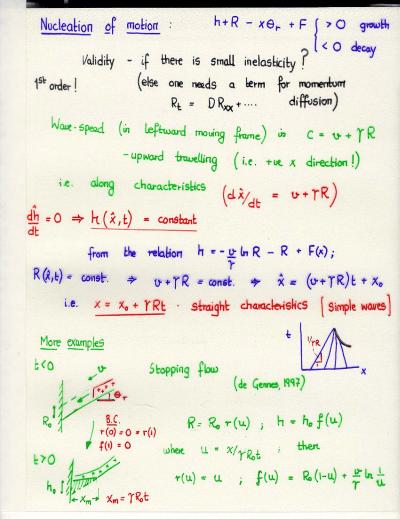 Nucleation of motion : h+R - xθr + F { > 0 growth
< 0 decay
Validity - if there is small inelasticity ?
1st order! (else one needs a term for momentum
Rt = DRxx + .... diffusion)
Wave-speed (in leftward moving frame) is c = v + γR
- upward travelling (i.e. +ve x direction!)
i.e. along characteristics (dx̂/dt = v + γR)
dĥ/dt = 0 ⇒ h(x̂,t) = constant
from the relation h = -v/γ ln R - R + F(x);
R(x̂,t) = const. ⇒ v+γR = const. ⇒ x̂ = (v+γR)t + x₀
i.e. x = x₀ + γRt . straight characteristics [simple waves]
More examples
t
1/γR
x
t<0
v
θr
R₀
Stopping flow
(de Gennes, 1997)
B.C.
r(0) = 0 = r(1)
f(1) = 0
R = R₀ r(u) ; h = h₀ f(u)
where u = x/γR₀t ; then
t>0
h₀
xm
xm = γR₀t
r(u) = u ; f(u) = R₀(1-u) + v/γ ln 1/u